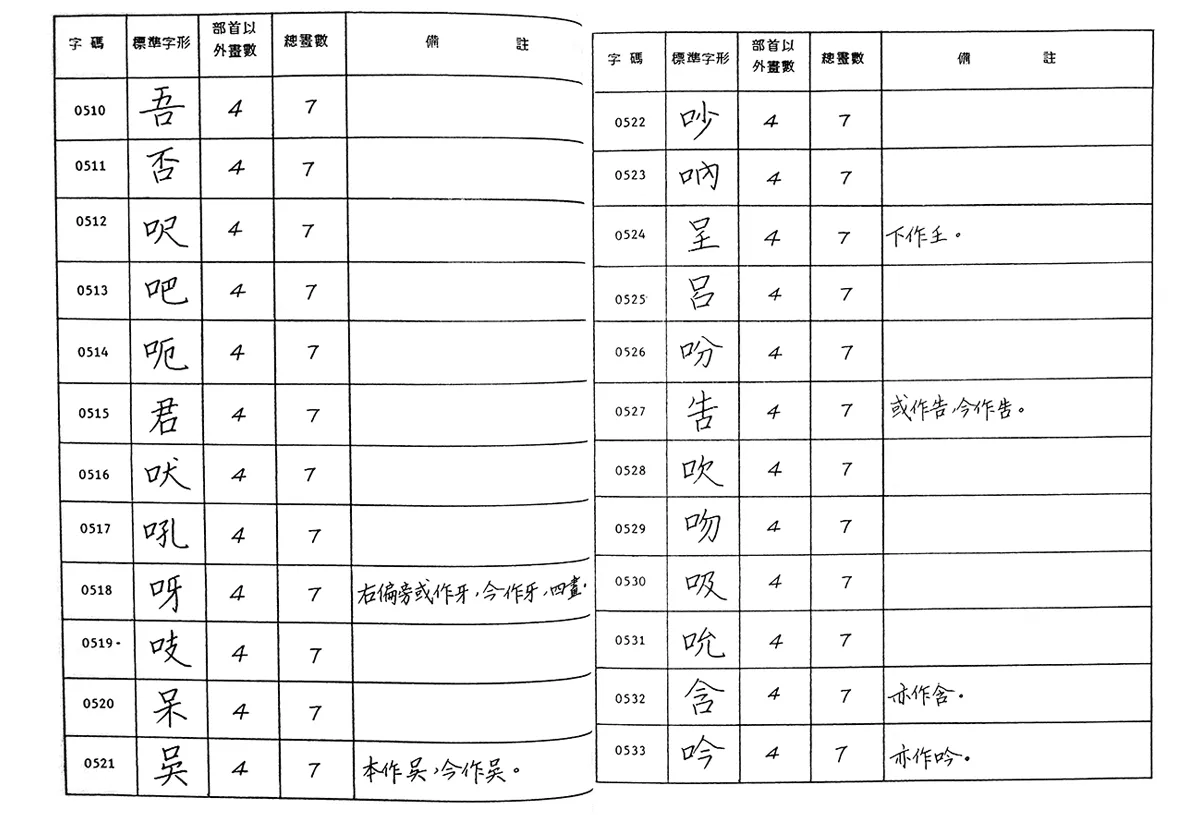 字碼 標準字形 部首以外畫數 總畫數 備註
0510 吾 4 7
0511 否 4 7
0512 呎 4 7
0513 吧 4 7
0514 呃 4 7
0515 君 4 7
0516 吠 4 7
0517 吼 4 7
0518 呀 4 7 右偏旁或作牙,今作牙,四畫。
0519 吱 4 7
0520 呆 4 7
0521 吳 4 7 本作吳,今作吳。
字碼 標準字形 部首以外畫數 總畫數 備註
0522 吵 4 7
0523 吶 4 7
0524 呈 4 7 下作𡈼。
0525 呂 4 7
0526 吩 4 7
0527 告 4 7 或作吿,今作告。
0528 吹 4 7
0529 吻 4 7
0530 吸 4 7
0531 吮 4 7
0532 含 4 7 亦作含。
0533 吟 4 7 亦作吟。